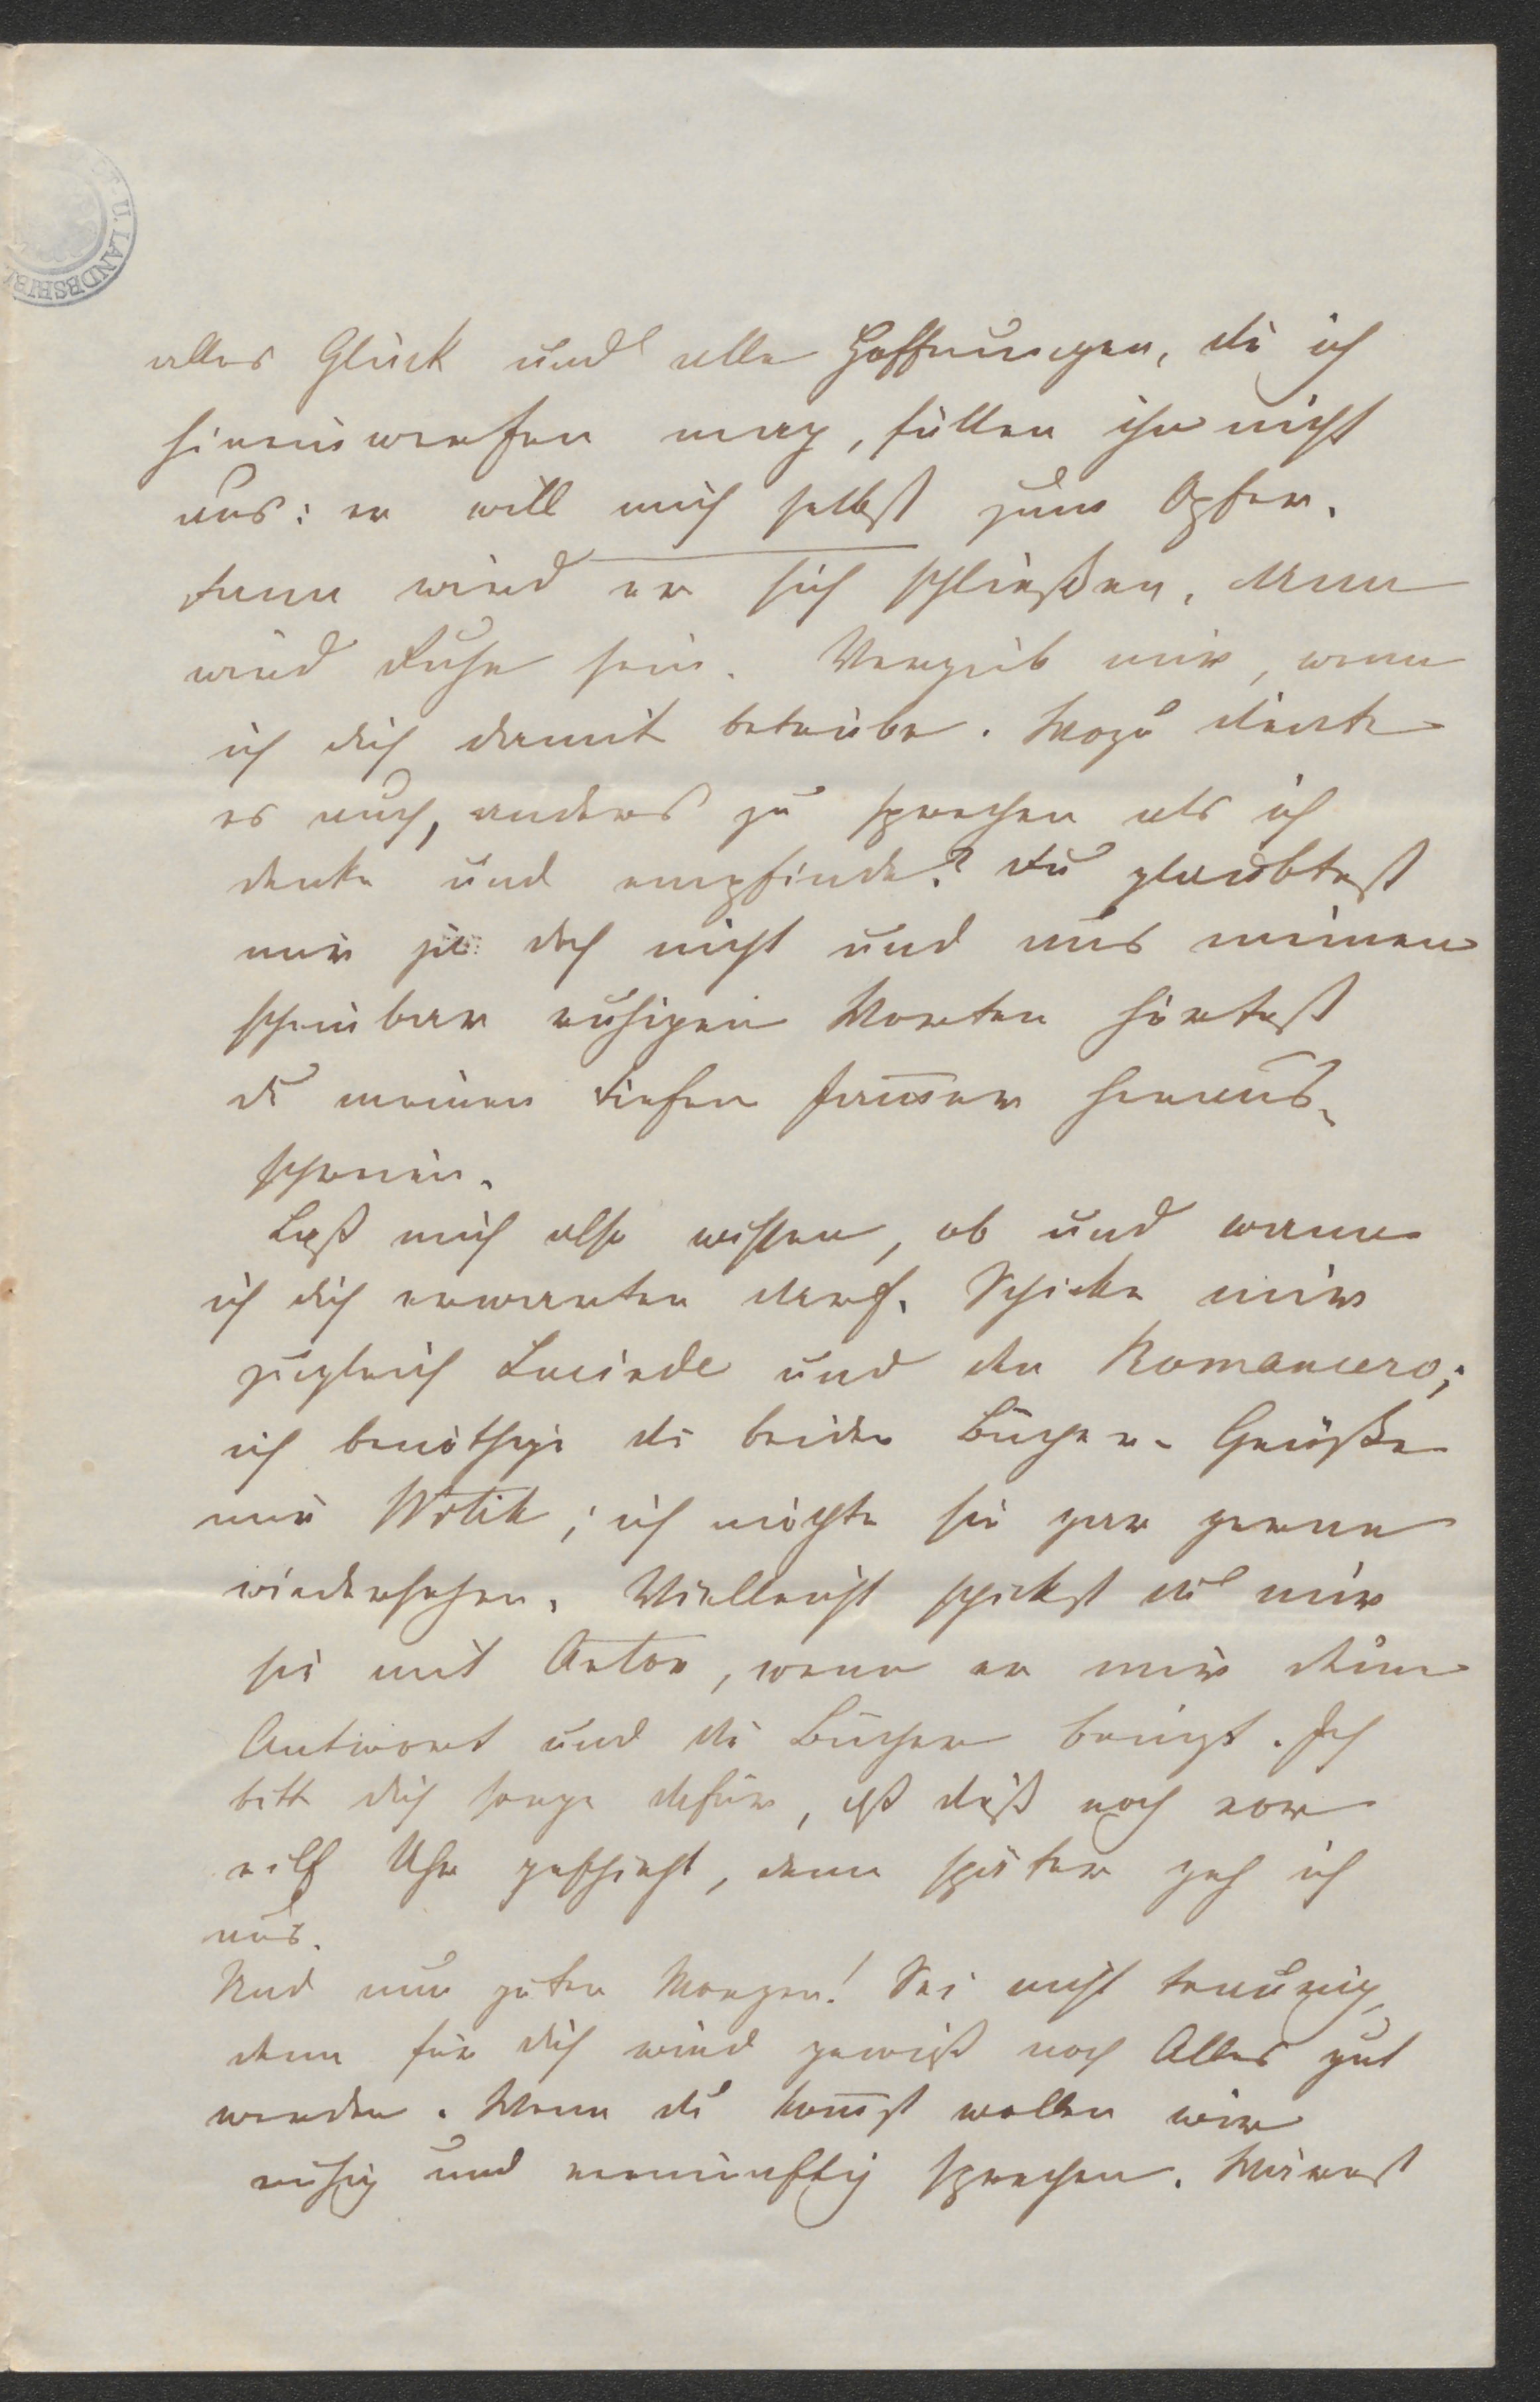 U. LANDESBIBL
alles Glück und alle Hoffnungen, die ich
hineinwerfen mag, füllen ihn nicht
aus: er will mich selbst zum Opfer.
dann wird er sich schließen, dann
wird Ruhe sein. Vergib mir, wenn
ich dich damit betrübe. Wozu diente
es auch, anders zu sprechen als ich
denke und empfinde? du glaubtest
mir ja doch nicht und aus meinen
scheinbar ruhigen Worten hörtest
du meinen tiefen Jam̅er heraus-
schrein.
Laß mich also wissen, ob und wann
ich dich erwarten darf. Schicke mir
zugleich Lucinde und den Romancero;
ich benöthige die beiden Bücher. Grüße
mir ; ich möchte sie gar gerne
wiedersehen. Vielleicht schickst du mir
sie mit Anton, wenn er mir deine
Antwort und die Bücher bringt. Ich
bitt dich sorge dafür, daß dieß noch vor
eilf Uhr geschieht, denn später geh ich
aus.
Und nun guten Morgen! Sei nicht traurig,
denn für dich wird gewiß noch Alles gut
werden. Wenn du kom̅st wollen wir
ruhig und vernünftig sprechen. Wärest